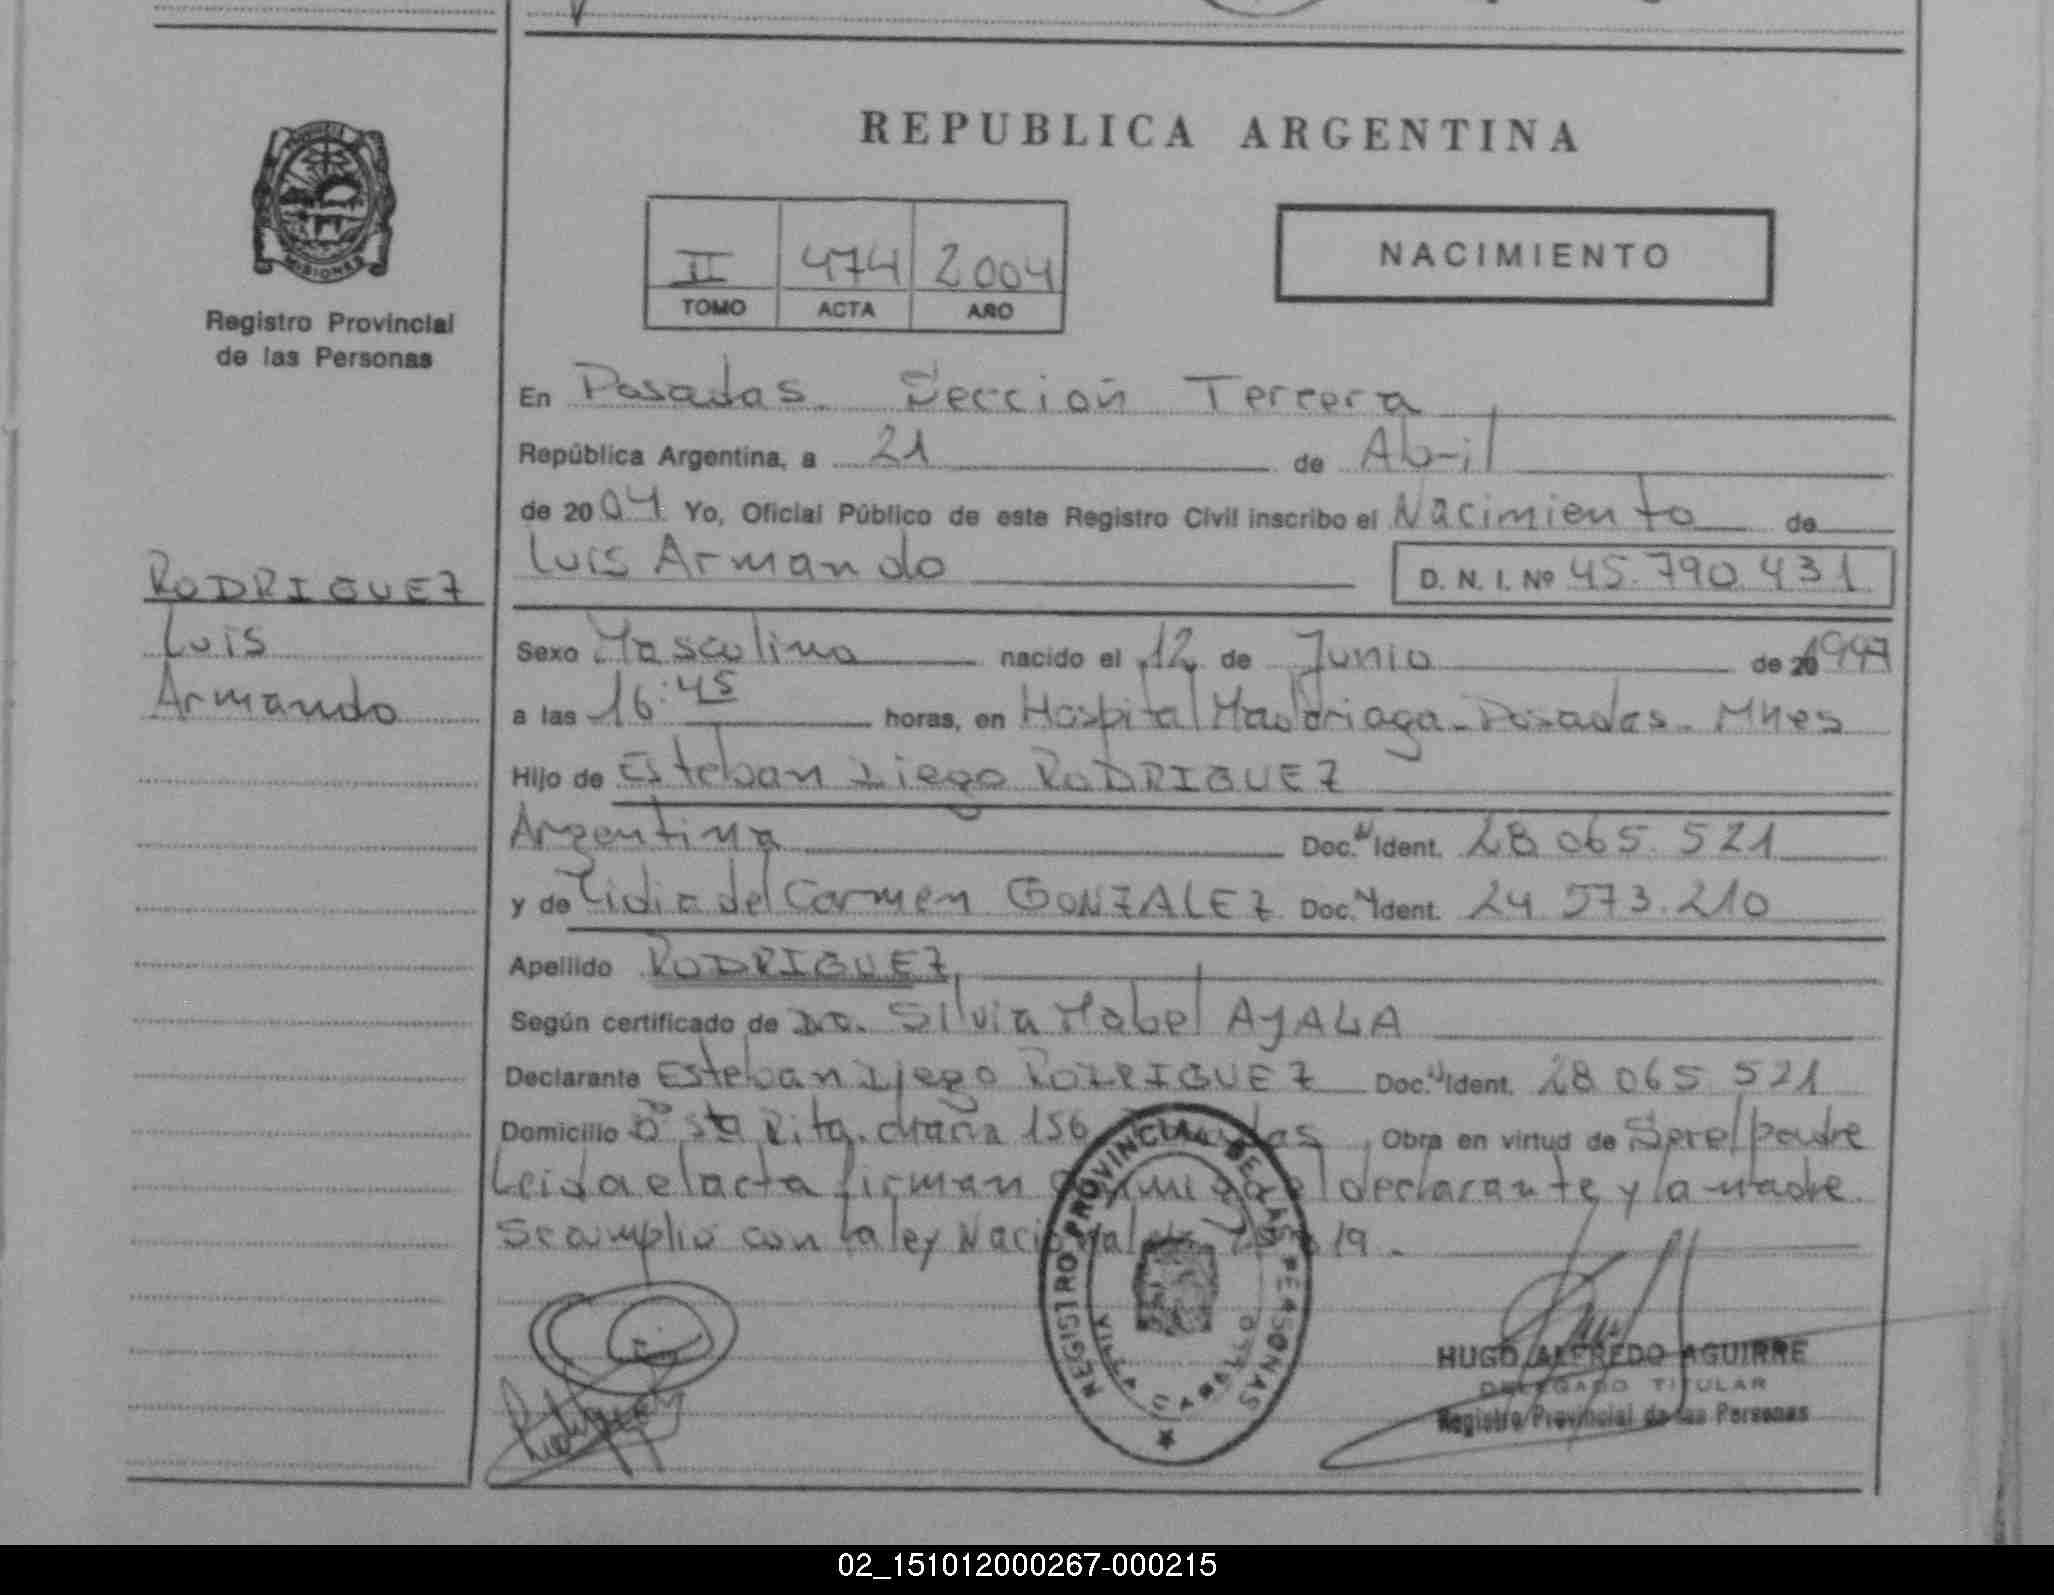 REPUBLICA ARGENTINA
MISIONES
Registro Provincial
de las Personas
II 474 2004
TOMO ACTA AÑO
NACIMIENTO
En Posadas. Sección Tercera
República Argentina, a 21 de Abril
de 2004 Yo, Oficial Público de este Registro Civil inscribo el Nacimiento de
Luis Armando D. N. I. Nº 45.790.431
RODRIGUEZ
Luis
Armando
Sexo Masculino nacido el 12 de Junio de
a las 16:45 horas, en Hospital Madariaga - Posadas - Mnes
Hijo de Esteban Diego RODRIGUEZ
Argentina Doc. Ident. 28.065.521
y de Lidia del Carmen GONZALEZ Doc. Ident. 24.573.210
Apellido RODRIGUEZ
Según certificado de Dra. Silvia Mabel AYALA
Declarante Esteban Diego RODRIGUEZ Doc. Ident. 28.065.521
Domicilio Bº Sta Rita. 156 Obra en virtud de Ser el padre
Leida el acta firman el declarante y la madre.
Se cumplió con la ley Nacional 19.
REGISTRO PROVINCIAL DE LAS PERSONAS
VILLA CABELLO
HUGO ALFREDO AGUIRRE
DELEGADO TITULAR
Registro Provincial de las Personas
02_151012000267-000215